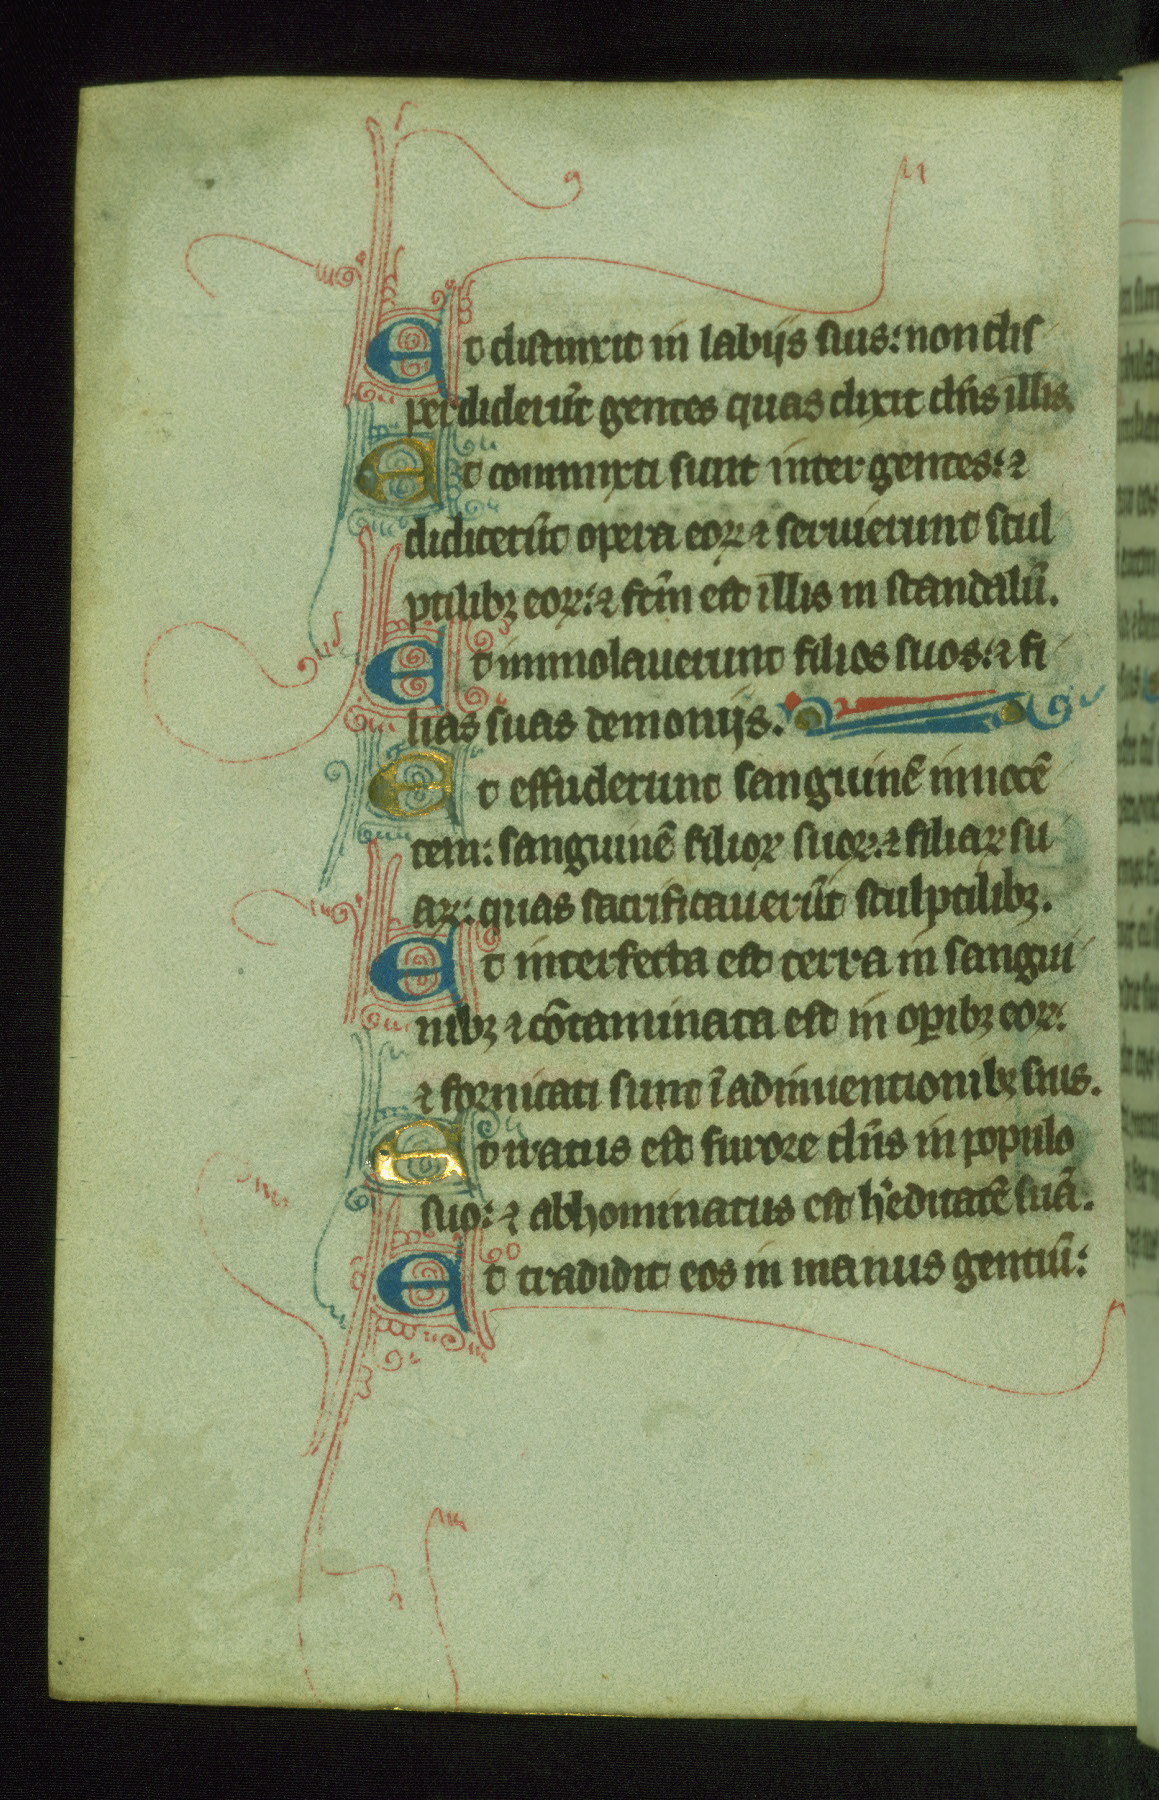 Et distinxit in labijs suis: non dis
perdiderūt gentes quas dixit dn̄s illis.
Et commixti sunt inter gentes: ⁊
didicerūt opera eoꝝ ⁊ seruierunt scul
ptilibꝫ eoꝝ: ⁊ fcm̄ est illis in scandalū.
Et immolauerunt filios suos: ⁊ fi
lias suas demonijs.
Et effuderunt sanguinē innocē
tem: sanguinē filioꝝ suoꝝ: ⁊ filiaꝝ su
aꝝ: quas sacrificauerūt sculptilibꝫ.
Et interfecta est terra in sangui
nibꝫ ⁊ cōtaminata est in oꝑibꝫ eoꝝ:
⁊ fornicati sunt ī adinuentionibꝫ suis.
Et iratus est furore dn̄s in populo
suo: ⁊ abhominatus est h̓editatē suā.
Et tradidit eos in manus gentiū: